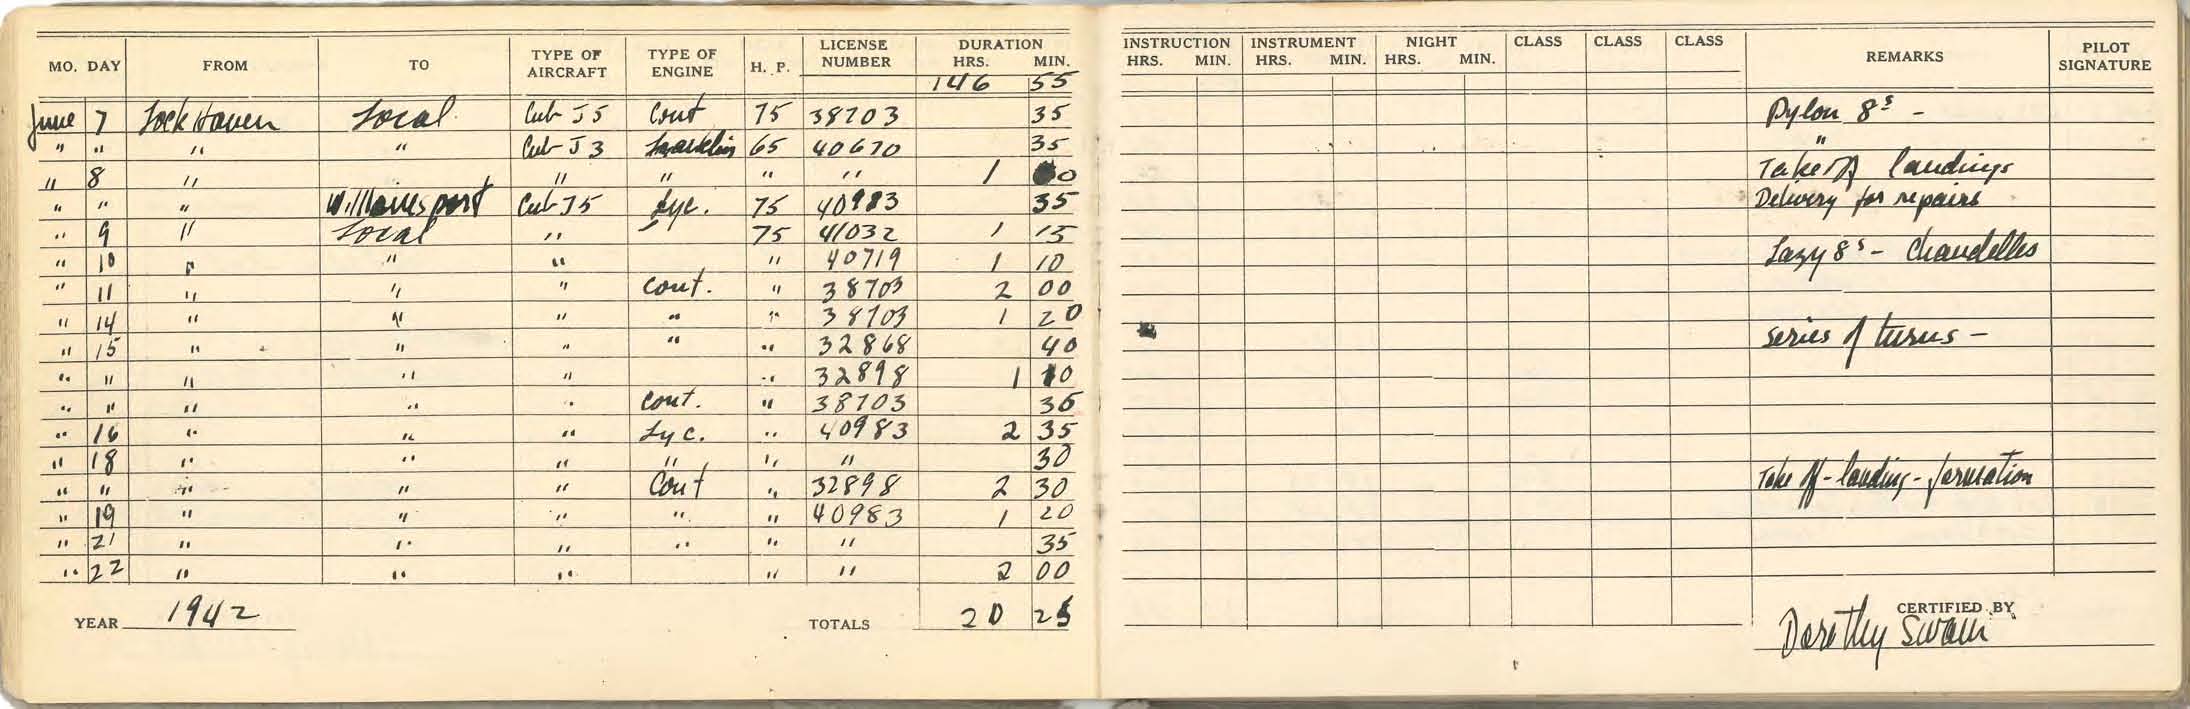 MO. DAY FROM TO TYPE OF AIRCRAFT TYPE OF ENGINE H. P. LICENSE NUMBER DURATION HRS. MIN. INSTRUCTION HRS. MIN. INSTRUMENT HRS. MIN. NIGHT HRS. MIN. CLASS CLASS CLASS REMARKS PILOT SIGNATURE
146 55
June 7 Lock Haven Local Cub J5 Cont 75 38703 35 Pylon 8s -
" " " " Cub J3 Franklin 65 40670 35 "
" 8 " " " " " 1 00 Take off landings
" " " Williamsport Cub J5 Lyc. 75 40983 35 Delivery for repairs
" 9 " Local " " 75 41032 1 15
" 10 " " " " 40719 1 10 Lazy 8s - Chandelles
" 11 " " " Cont. " 38703 2 00
" 14 " " " " " 38703 1 20
" 15 " " " " " 32868 40 Series of turns -
" " " " " " 32898 1 10
" " " " " Cont. " 38703 35
" 16 " " " Lyc. " 40983 2 35
" 18 " " " " " " 30
" " " " " Cont " 32898 2 30 Take off - landing - formation
" 19 " " " " " 40983 1 20
" 21 " " " " " " 35
" 22 " " " " " 2 00
YEAR 1942 TOTALS 20 25 CERTIFIED BY
Dorothy Swain